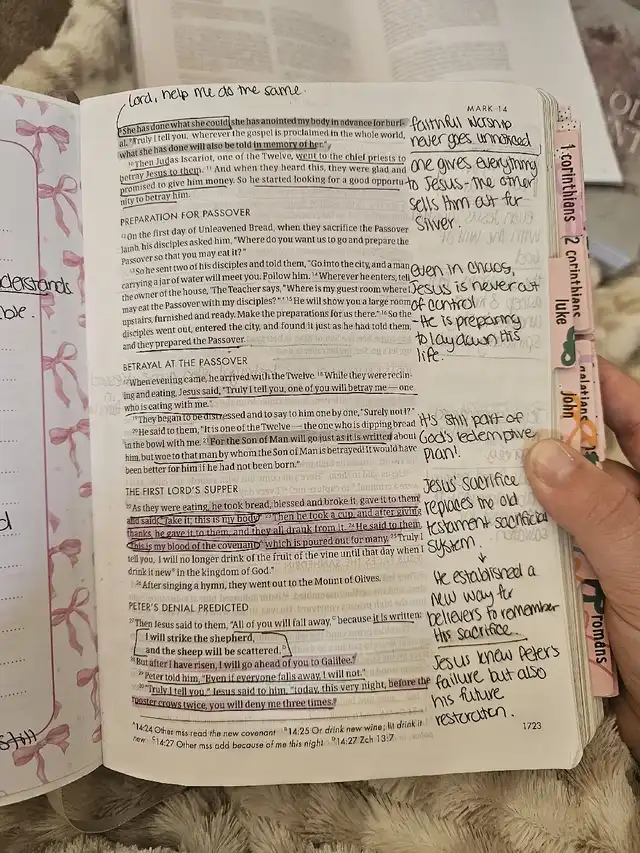 Lord, help me do the same.
MARK 14
⁸She has done what she could; she has anointed my body in advance for buri-
al. ⁹Truly I tell you, wherever the gospel is proclaimed in the whole world,
what she has done will also be told in memory of her."
¹⁰Then Judas Iscariot, one of the Twelve, went to the chief priests to
betray Jesus to them. ¹¹And when they heard this, they were glad and
promised to give him money. So he started looking for a good opportu-
nity to betray him.
PREPARATION FOR PASSOVER
¹²On the first day of Unleavened Bread, when they sacrifice the Passover
lamb, his disciples asked him, "Where do you want us to go and prepare the
Passover so that you may eat it?"
¹³So he sent two of his disciples and told them, "Go into the city, and a man
carrying a jar of water will meet you. Follow him. ¹⁴Wherever he enters, tell
the owner of the house, 'The Teacher says, "Where is my guest room where I
may eat the Passover with my disciples?"' ¹⁵He will show you a large room
upstairs, furnished and ready. Make the preparations for us there." ¹⁶So the
disciples went out, entered the city, and found it just as he had told them,
and they prepared the Passover.
BETRAYAL AT THE PASSOVER
¹⁷When evening came, he arrived with the Twelve. ¹⁸While they were reclin-
ing and eating, Jesus said, "Truly I tell you, one of you will betray me — one
who is eating with me."
¹⁹They began to be distressed and to say to him one by one, "Surely not I?"
²⁰He said to them, "It is one of the Twelve — the one who is dipping bread
in the bowl with me. ²¹For the Son of Man will go just as it is written about
him, but woe to that man by whom the Son of Man is betrayed! It would have
been better for him if he had not been born."
THE FIRST LORD'S SUPPER
²²As they were eating, he took bread, blessed and broke it, gave it to them
and said, "Take it; this is my body." ²³Then he took a cup, and after giving
thanks, he gave it to them, and they all drank from it. ²⁴He said to them,
"This is my blood of the covenant,ᴬ which is poured out for many. ²⁵Truly I
tell you, I will no longer drink of the fruit of the vine until that day when I
drink it newᴮ in the kingdom of God."
²⁶After singing a hymn, they went out to the Mount of Olives.
PETER'S DENIAL PREDICTED
²⁷Then Jesus said to them, "All of you will fall away,ᶜ because it is written:
I will strike the shepherd,
and the sheep will be scattered.ᴰ
²⁸But after I have risen, I will go ahead of you to Galilee."
²⁹Peter told him, "Even if everyone falls away, I will not."
³⁰"Truly I tell you," Jesus said to him, "today, this very night, before the
rooster crows twice, you will deny me three times."
ᴬ14:24 Other mss read the new covenant ᴮ14:25 Or drink new wine; lit drink it
new ᶜ14:27 Other mss add because of me this night ᴰ14:27 Zch 13:7
1723
faithful worship
never goes unnoticed
one gives everything
to Jesus - the other
sells Him out for
Silver.
even in chaos,
Jesus is never out
of control
- He is preparing
to lay down His
life.
It's still part of
God's redemptive
plan!
Jesus' sacrifice
replaces the old
testament sacrificial
system.
↓
He established a
new way for
believers to remember
His sacrifice.
Jesus knew Peter's
failure but also
his future
restoration.
1 corinthians
2 corinthians
luke
galatians
john
romans
derstands
ble.